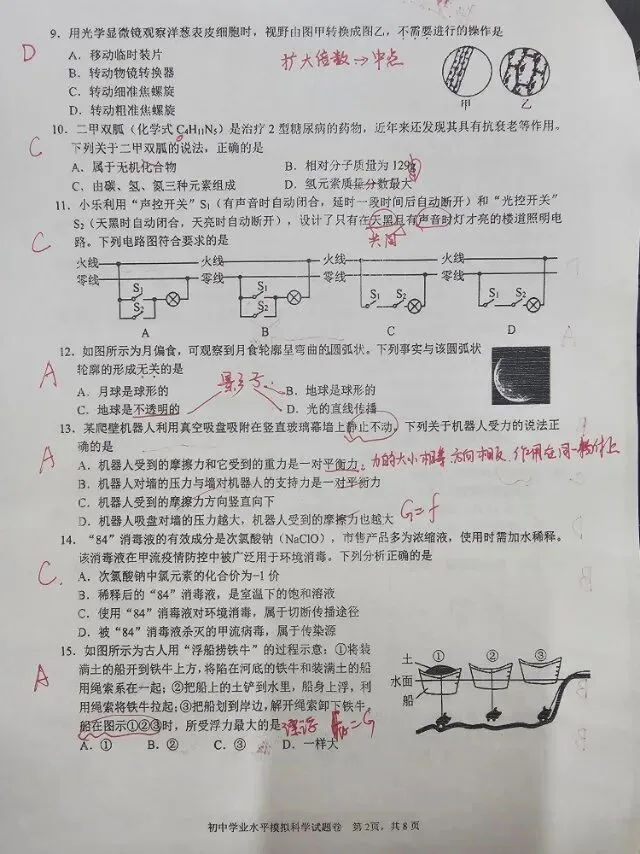 9. 用光学显微镜观察洋葱表皮细胞时，视野由图甲转换成图乙，不需要进行的操作是
D
A．移动临时装片
扩大倍数→中点
B．转动物镜转换器
C．转动细准焦螺旋
甲 乙
D．转动粗准焦螺旋
10．二甲双胍（化学式 C₄H₁₁N₅）是治疗 2 型糖尿病的药物，近年来还发现其具有抗衰老等作用。
C
下列关于二甲双胍的说法，正确的是
A、属于无机化合物 B．相对分子质量为 129g
C、由碳、氢、氮三种元素组成 D．氢元素质量分数最大
11．小乐利用“声控开关”S₁（有声音时自动闭合，延时一段时间后自动断开）和“光控开关”
S₂（天黑时自动闭合，天亮时自动断开），设计了只有在天黑且有声音时灯才亮的楼道照明电
C
路。下列电路图符合要求的是
火线 火线 火线 火线
零线 零线 零线 零线
S₁ S₁ S₁ S₂ S₁ S₂
S₂ S₂
A B C D
12．如图所示为月偏食，可观察到月食轮廓呈弯曲的圆弧状。下列事实与该圆弧状
A
轮廓的形成无关的是
A．月球是球形的 B．地球是球形的
C．地球是不透明的 D．光的直线传播
13．某爬壁机器人利用真空吸盘吸附在竖直玻璃幕墙上静止不动，下列关于机器人受力的说法正
A
确的是
A．机器人受到的摩擦力和它受到的重力是一对平衡力
力的大小相等 方向相反、作用在同一物体上
B．机器人对墙的压力与墙对机器人的支持力是一对平衡力
C．机器人受到的摩擦力方向竖直向下
D．机器人吸盘对墙的压力越大，机器人受到的摩擦力也越大
G=f
14．“84”消毒液的有效成分是次氯酸钠（NaClO），市售产品多为浓缩液，使用时需加水稀释。
该消毒液在甲流疫情防控中被广泛用于环境消毒。下列分析正确的是
C
A．次氯酸钠中氯元素的化合价为–1 价
B．稀释后的“84”消毒液，是室温下的饱和溶液
C．使用“84”消毒液对环境消毒，属于切断传播途径
D．被“84”消毒液杀灭的甲流病毒，属于传染源
15．如图所示为古人用“浮船捞铁牛”的过程示意：①将装
A
满土的船开到铁牛上方，将陷在河底的铁牛和装满土的船
用绳索系在一起；②把船上的土铲到水里，船身上浮，利
用绳索将铁牛拉起；③把船划到岸边，解开绳索卸下铁牛
船在图示①②③时，所受浮力最大的是
A．① B．② C．③ D．一样大
土 ① ② ③
水面
船
初中学业水平模拟科学试题卷 第 2页，共 8 页